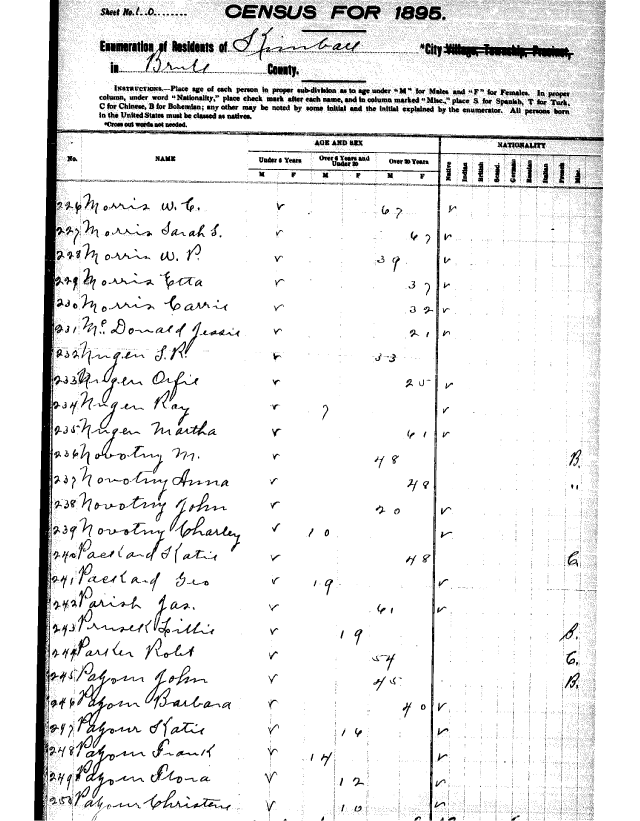 Sheet No. 10
CENSUS FOR 1895.
Enumeration of Residents of Kimball *City Village, Township, Precinct,
in Brule County.
INSTRUCTIONS.—Place age of each person in proper sub-division as to age under "M" for Males and "F" for Females. In proper
column, under word "Nationality," place check mark after each name, and in column marked "Misc.," place S for Spanish, T for Turk,
C for Chinese, B for Bohemian; any other may be noted by some initial and the initial explained by the enumerator. All persons born
in the United States must be classed as natives.
*Cross out words not needed.
AGE AND SEX NATIONALITY
No. NAME Under 6 Years Over 6 Years and Under 20 Over 20 Years Native Indian British Scand. German Russian Italian French Misc.
M F M F M F
226 Morris W. C. ✓ 67 ✓
227 Morris Sarah S. ✓ 67 ✓
228 Morris W. P. ✓ 39 ✓
229 Morris Etta ✓ 37 ✓
230 Morris Carrie ✓ 32 ✓
231 Mc Donald Jessie ✓ 21 ✓
232 Nugen S. R. ✓ 33
233 Nugen Orfie ✓ 25 ✓
234 Nugen Ray ✓ 7 ✓
235 Nugen Martha ✓ 61 ✓
236 Novotny M. ✓ 48 B.
237 Novotny Anna ✓ 48 "
238 Novotny John ✓ 20 ✓
239 Novotny Charley ✓ 10 ✓
240 Packard Katie ✓ 48 C
241 Packard Geo ✓ 19 ✓
242 Parish Jas. ✓ 61 ✓
243 Prusek Lillie ✓ 19 B.
244 Parker Robt ✓ 54 C.
245 Payour John ✓ 45 B.
246 Payour Barbara ✓ 40 ✓
247 Payour Katie ✓ 16 ✓
248 Payour Frank ✓ 14 ✓
249 Payour Flora ✓ 12 ✓
250 Payour Christene ✓ 10 ✓